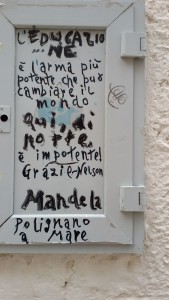 L'EDUCAZIO
NE
è l'arma più
potente che può
cambiare il
mondo
quindi
no rte
è impotente!
Grazie-Nelson
Mandela
POLIGNANO
A MARE